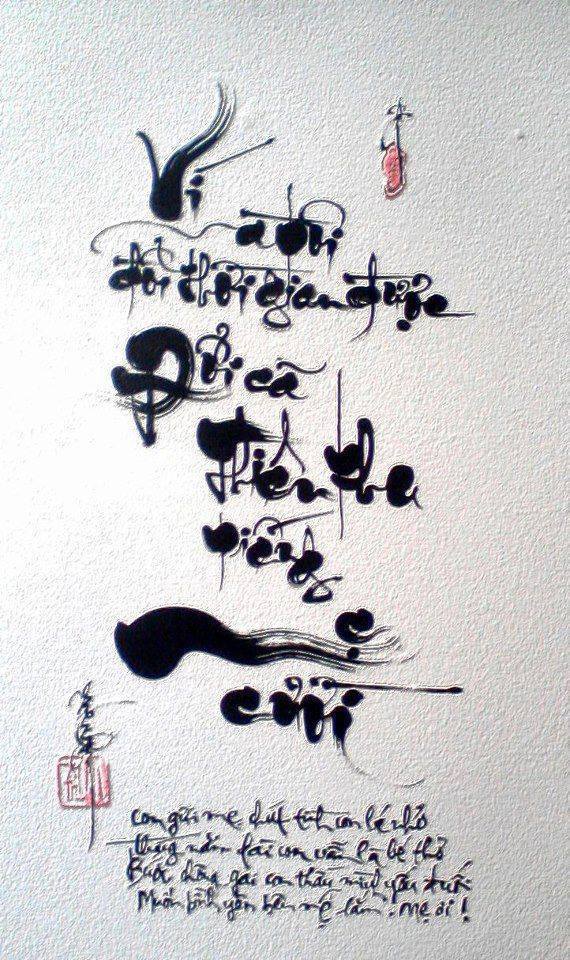 Ví
mà tôi
đổi thời gian được
Đổi cả
thiên thu
tiếng
mẹ
cười
Con gửi mẹ chút tình con bé nhỏ
Tháng năm dài con vẫn là bé thơ
Bước chông gai con thấy mình yếu đuối
Muốn bình yên bên mẹ lắm. Mẹ ơi!